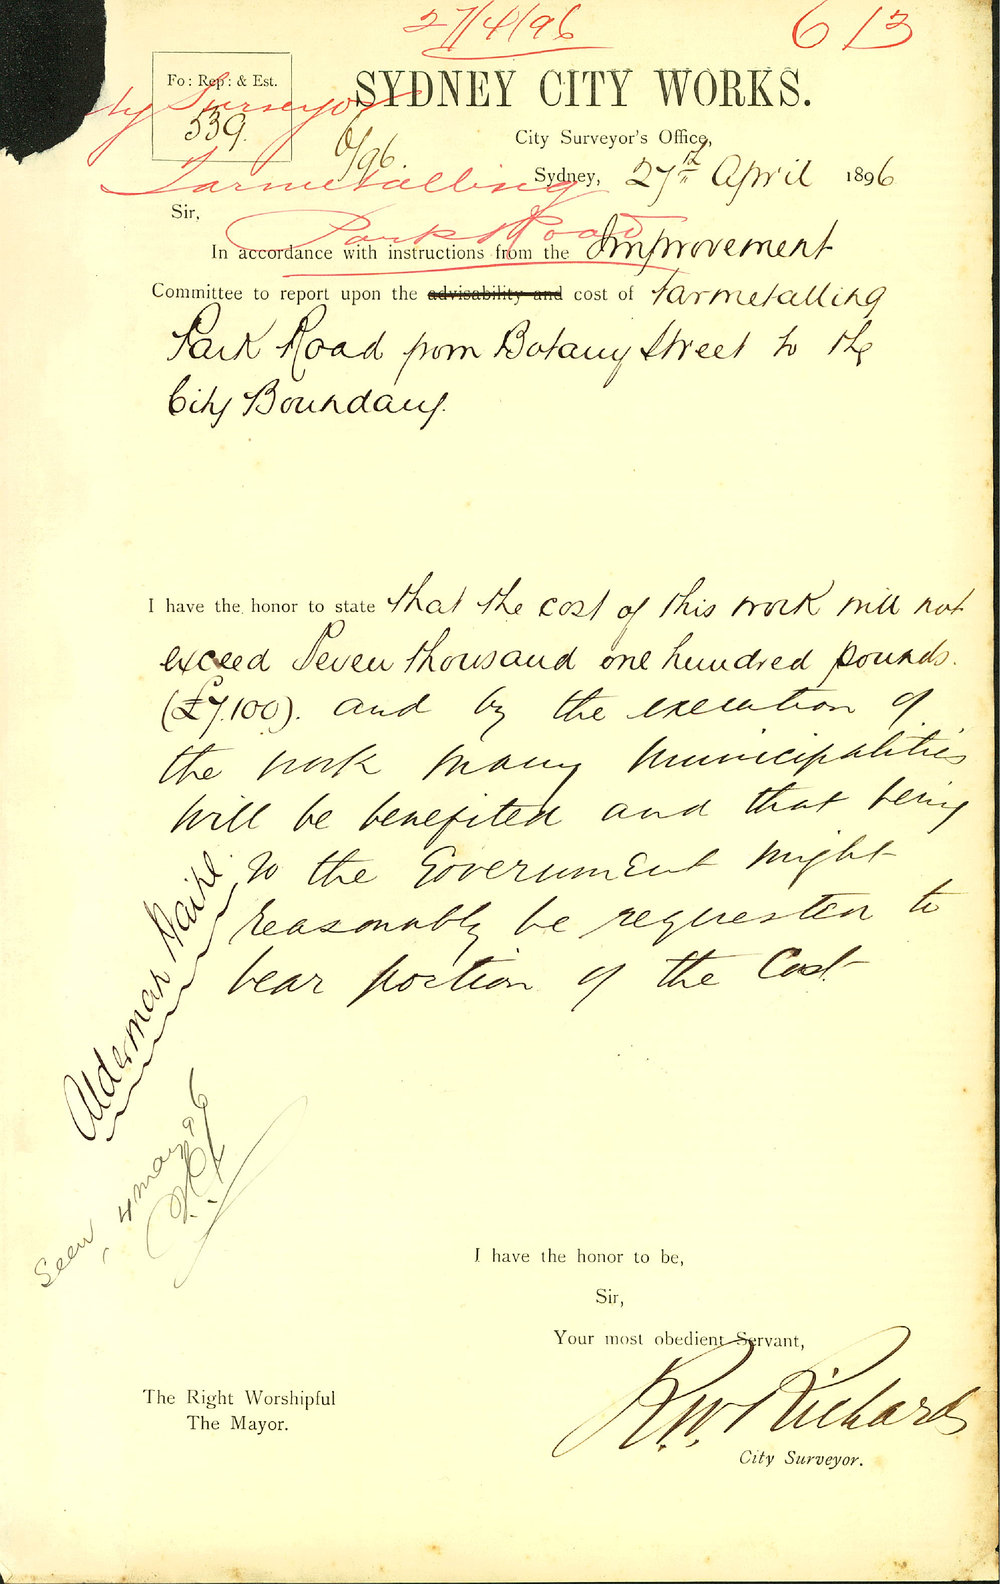 27/4/96
613
Fo: Rep: & Est.
539
6/96.
SYDNEY CITY WORKS.
City Surveyor
City Surveyor's Office,
Tarmetalling
Sydney, 27th April 1896
Sir,
Park Road
In accordance with instructions from the Improvement
Committee to report upon the advisability and cost of tarmetalling
Park Road from Botany Street to the
City Boundary.
I have the honor to state that the cost of this work will not
exceed Seven thousand one hundred pounds.
(£7,100). and by the execution of
the work many Municipalities
will be benefited and that being
so the Government might
reasonably be requested to
bear portion of the Cost
Alderman
Seen, 4 May 96
I have the honor to be,
Sir,
Your most obedient Servant,
R.W. Richards
City Surveyor.
The Right Worshipful
The Mayor.